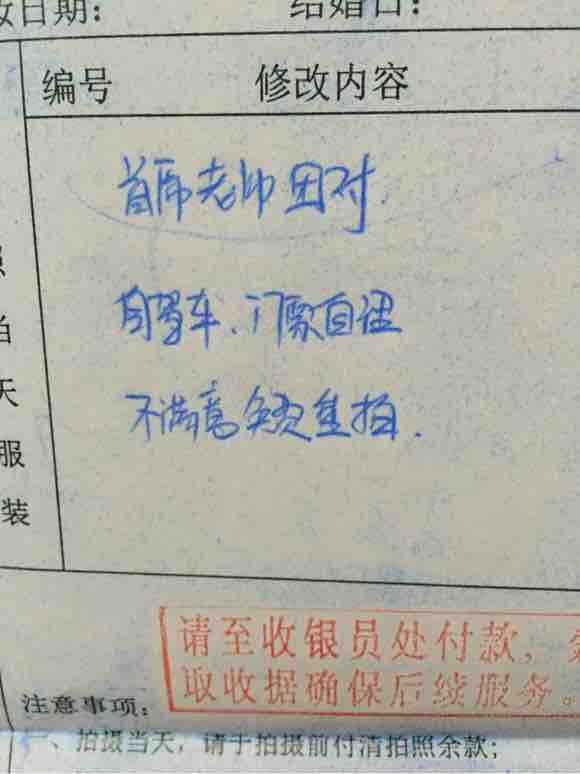 改日期: 结婚日:
编号 修改内容
首席老师团对
自驾车、门票自理
不满意免费重拍.
照
拍
天
服
装
请至收银员处付款,
取收据确保后续服务。
注意事项:
一、拍摄当天,请于拍摄前付清拍照余款;